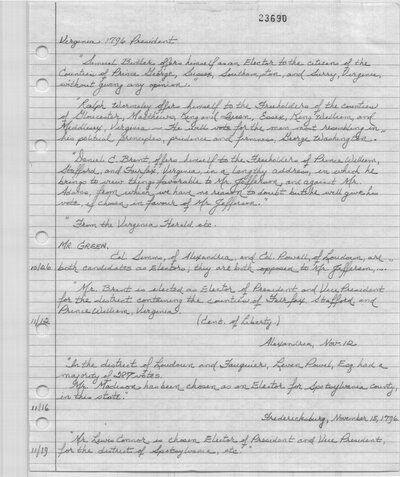 23690
Virginia 1796 President
"Samuel Butler offers himself as an Elector to the citizens of the
Counties of Prince George, Sussex, Southampton, and Surry, Virginia,
without giving any opinion."
"Ralph Wormeley offers himself to the Freeholders of the counties
of Gloucester, Mathews, King and Queen, Essex, King William, and
Middlesex, Virginia — He will vote for the man most resembling in
his political principles, prudence and firmness, George Washington."
"Daniel C. Brent, offers himself to the Freeholders of Prince William,
Stafford, and Fairfax, Virginia, in a lengthy address, in which he
brings to view things favorable to Mr. Jefferson, and against Mr.
Adams, from which we have no reason to doubt but he will give his
vote, if chosen in favour of Mr. Jefferson."
"From the Virginia Herald, etc.
MR. GREEN,
Col. Simms, of Alexandria, and Col. Powell, of Loudoun, are
10/26 both candidates as Electors; they are both opposed to Mr. Jefferson,...
"Mr. Brent is elected as Elector of President and Vice President
for the district containing the counties of Fairfax, Stafford and
Prince William, Virginia."
11/12 (Cent. of Liberty)
Alexandria, Nov. 12
"In the district of Loudoun and Fauquier, Leven Powel, Esq. had a
majority of votes.
Mr. Madison has been chosen as an Elector for Spotsylvania county,
in this state."
11/16
Fredericksburg, November 15, 1796
"Mr. Lewis Connor is chosen Elector of President and Vice President,
11/19 for the district of Spotsylvania, etc"